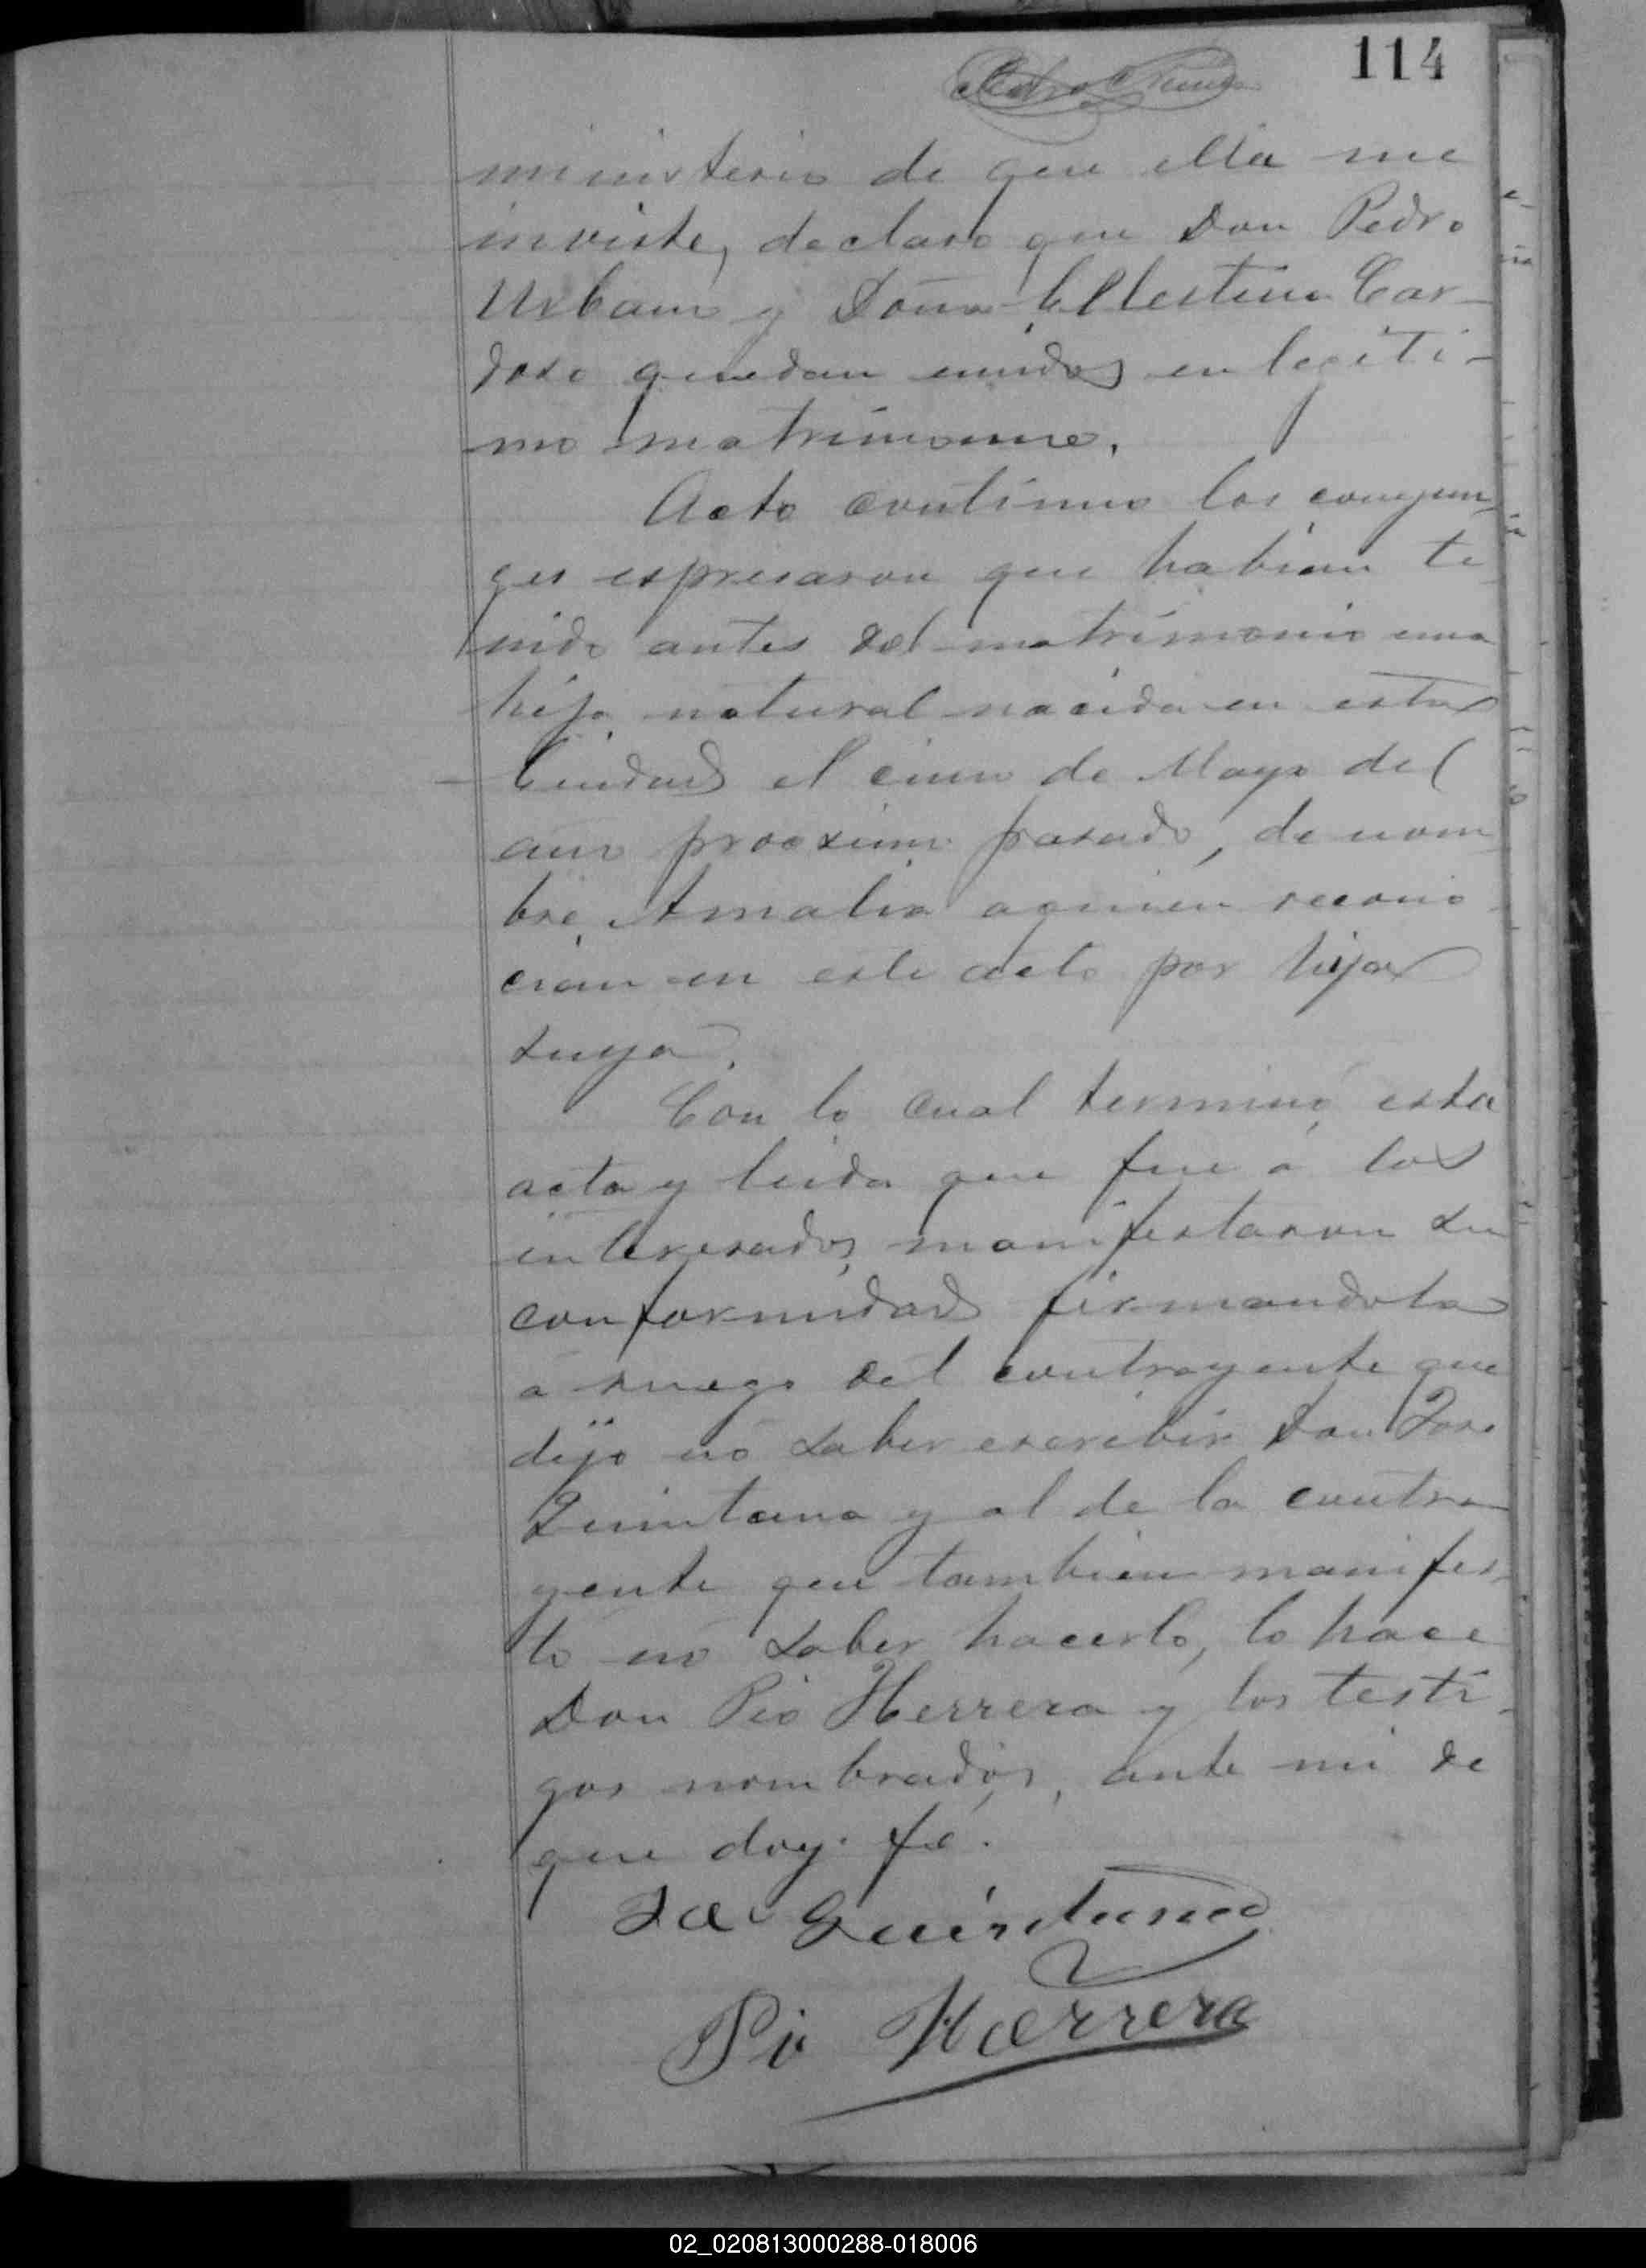 114
ministerio de que ella me
inviste, declaro que Don Pedro
Urbano y Doña Cellestina Car-
doso quedan unidos en legiti-
mo matrimonio.
Acto continuo los conyu-
ges espresaron que habian te-
nido antes del matrimonio una
hija natural nacida en esta
Ciudad el cinco de Mayo del
año procsimo pasado, de nom-
bre Amalia aquien recono-
cian en este acto por hija
suya.
Con lo cual terminó esta
acta y leida que fue á los
interesados manifestaron su
conformidad firmandola
a ruego del contrayente que
dijo no saber escribir Don José
Quintana y al de la contra-
yente que tambien manifes-
tó no saber hacerlo, lo hace
Don Pio Herrera y los testi-
gos nombrados, ante mi de
que doy fé.
Quintana
Pio Herrera
02_020813000288-018006